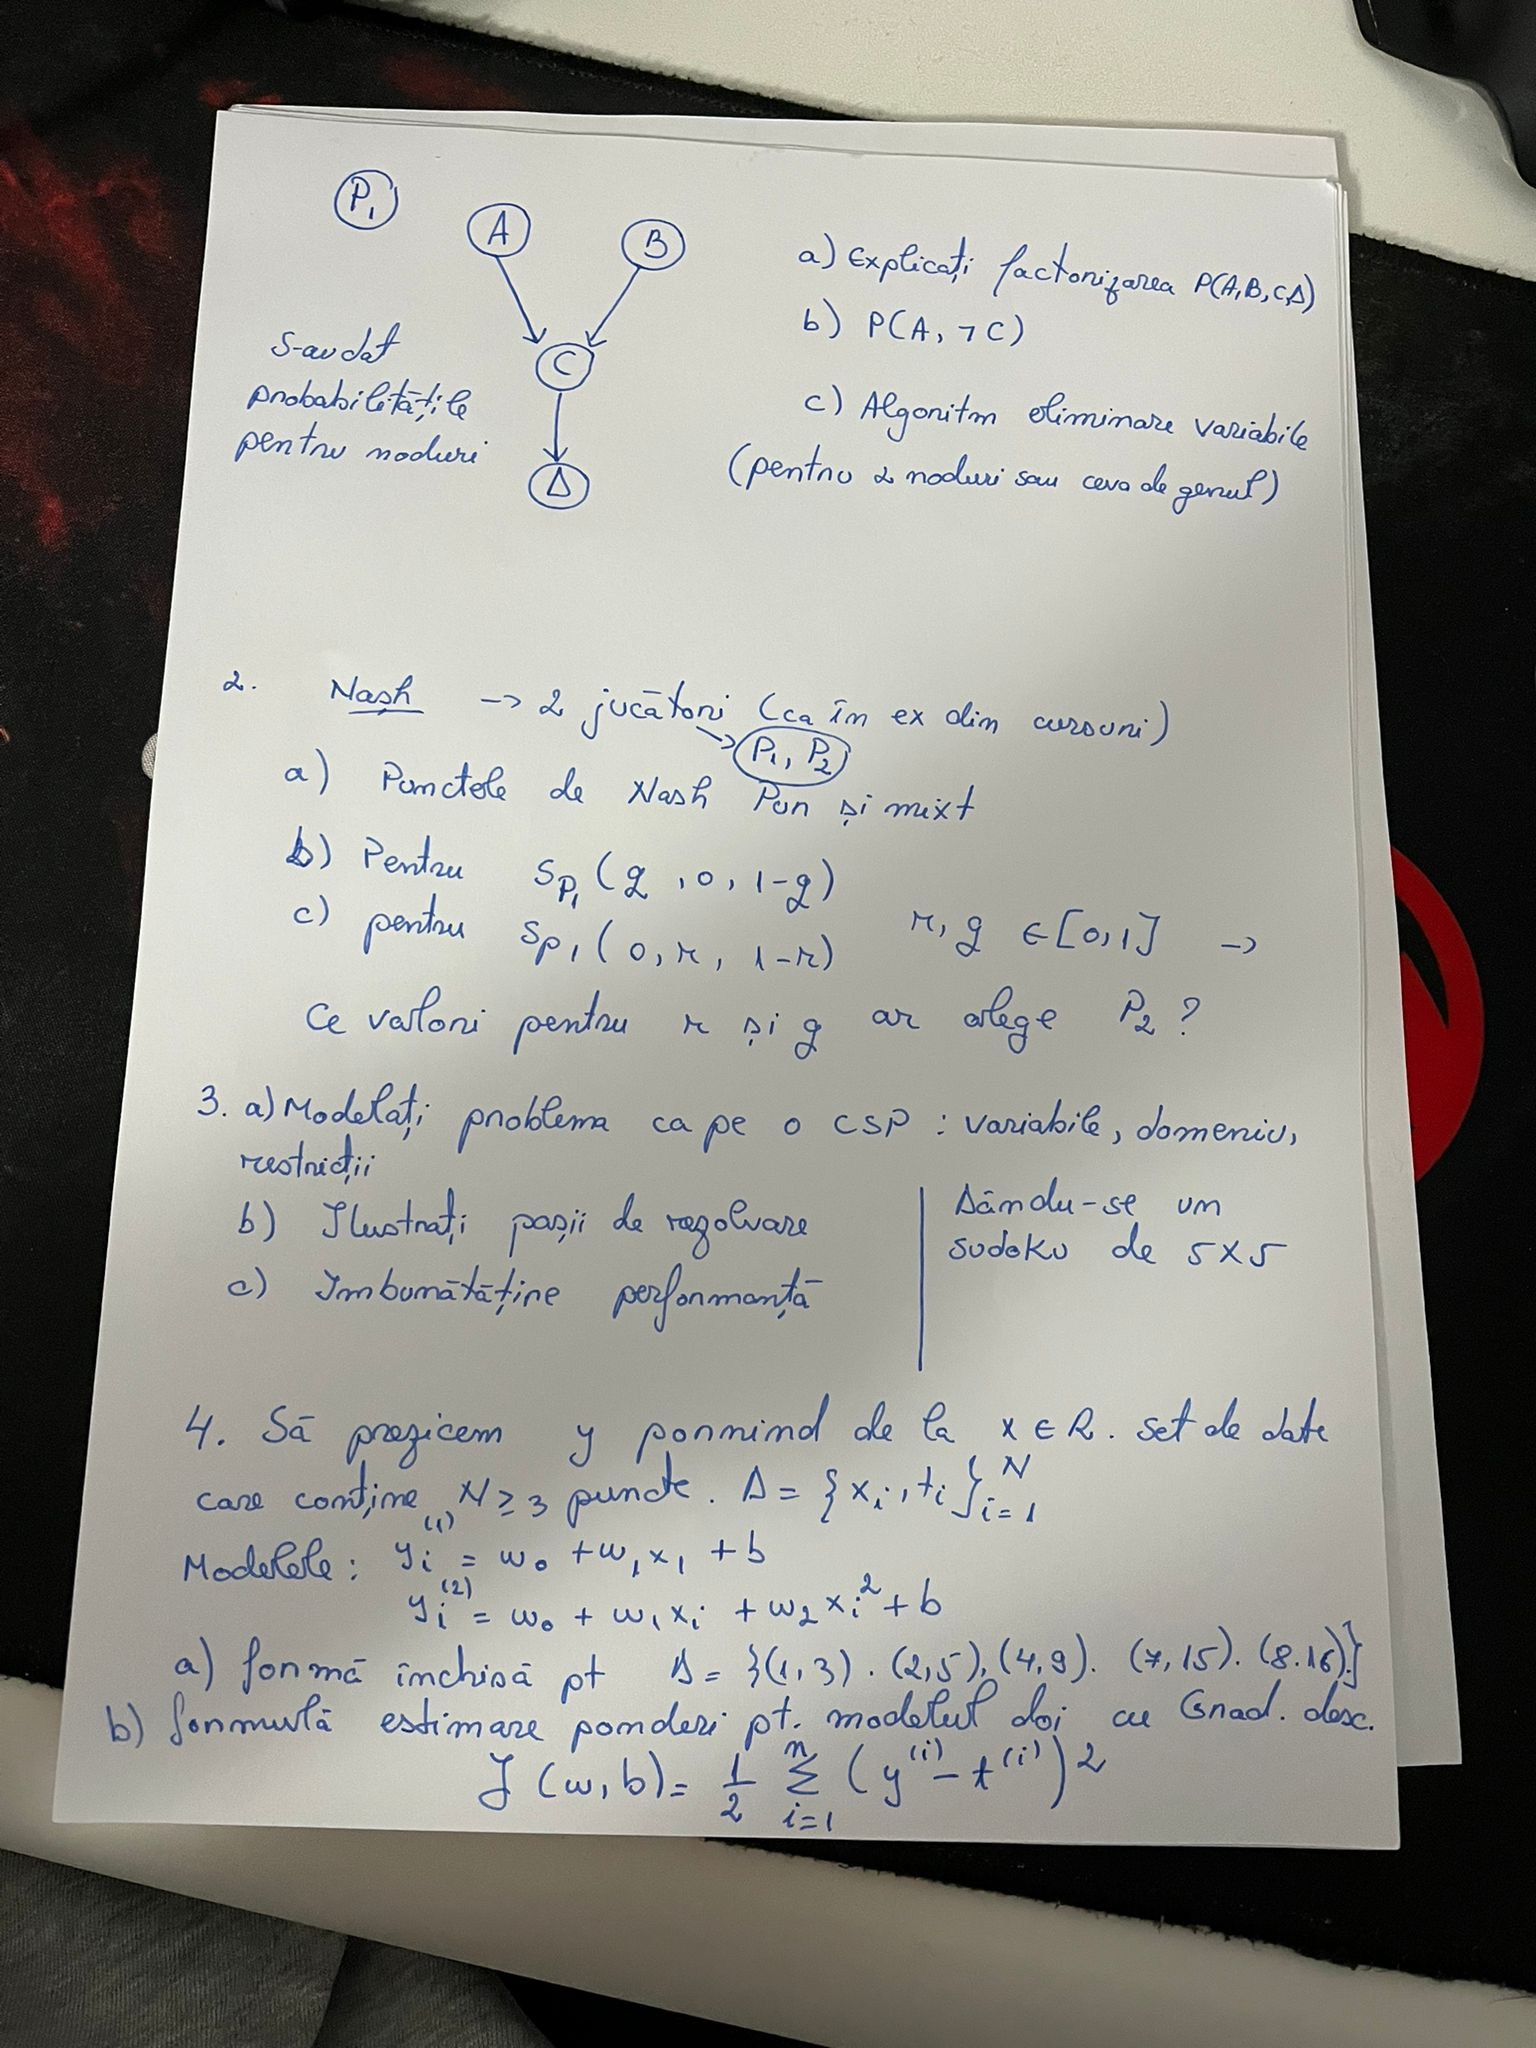 P₁
A
B
C
Δ
S-au dat
probabilitățile
pentru noduri
a) Explicați factorizarea P(A,B,C,Δ)
b) P(A, ¬C)
c) Algoritm eliminare variabile
(pentru 2 noduri sau ceva de genul)
2. Nash -> 2 jucători (ca în ex din cursuri)
-> P₁, P₂
a) Punctele de Nash Pur și mixt
b) Pentru S_P₁ (q, 0, 1-q)
c) pentru S_P₁ (0, r, 1-r) r, q ∈ [0,1] ->
Ce valori pentru r și q ar alege P₂?
3. a) Modelați problema ca pe o CSP : variabile, domeniu,
restricții
b) Ilustrați pașii de rezolvare
c) Îmbunătățire performanță
Dându-se un
sudoku de 5x5
4. Să prezicem y pornind de la x ∈ R. set de date
care conține N ≥ 3 puncte. Δ = {xᵢ, tᵢ}ᵢ₌₁ᴺ
Modelele: yᵢ⁽¹⁾ = w₀ + w₁x₁ + b
yᵢ⁽²⁾ = w₀ + w₁xᵢ + w₂xᵢ² + b
a) formă închisă pt Δ = {(1,3). (2,5), (4,9). (7,15). (8.16).}
b) formulă estimare ponderi pt. modelul doi cu Grad. desc.
J(w,b) = 1/2 Σᵢ₌₁ⁿ (y⁽ⁱ⁾ - t⁽ⁱ⁾)²